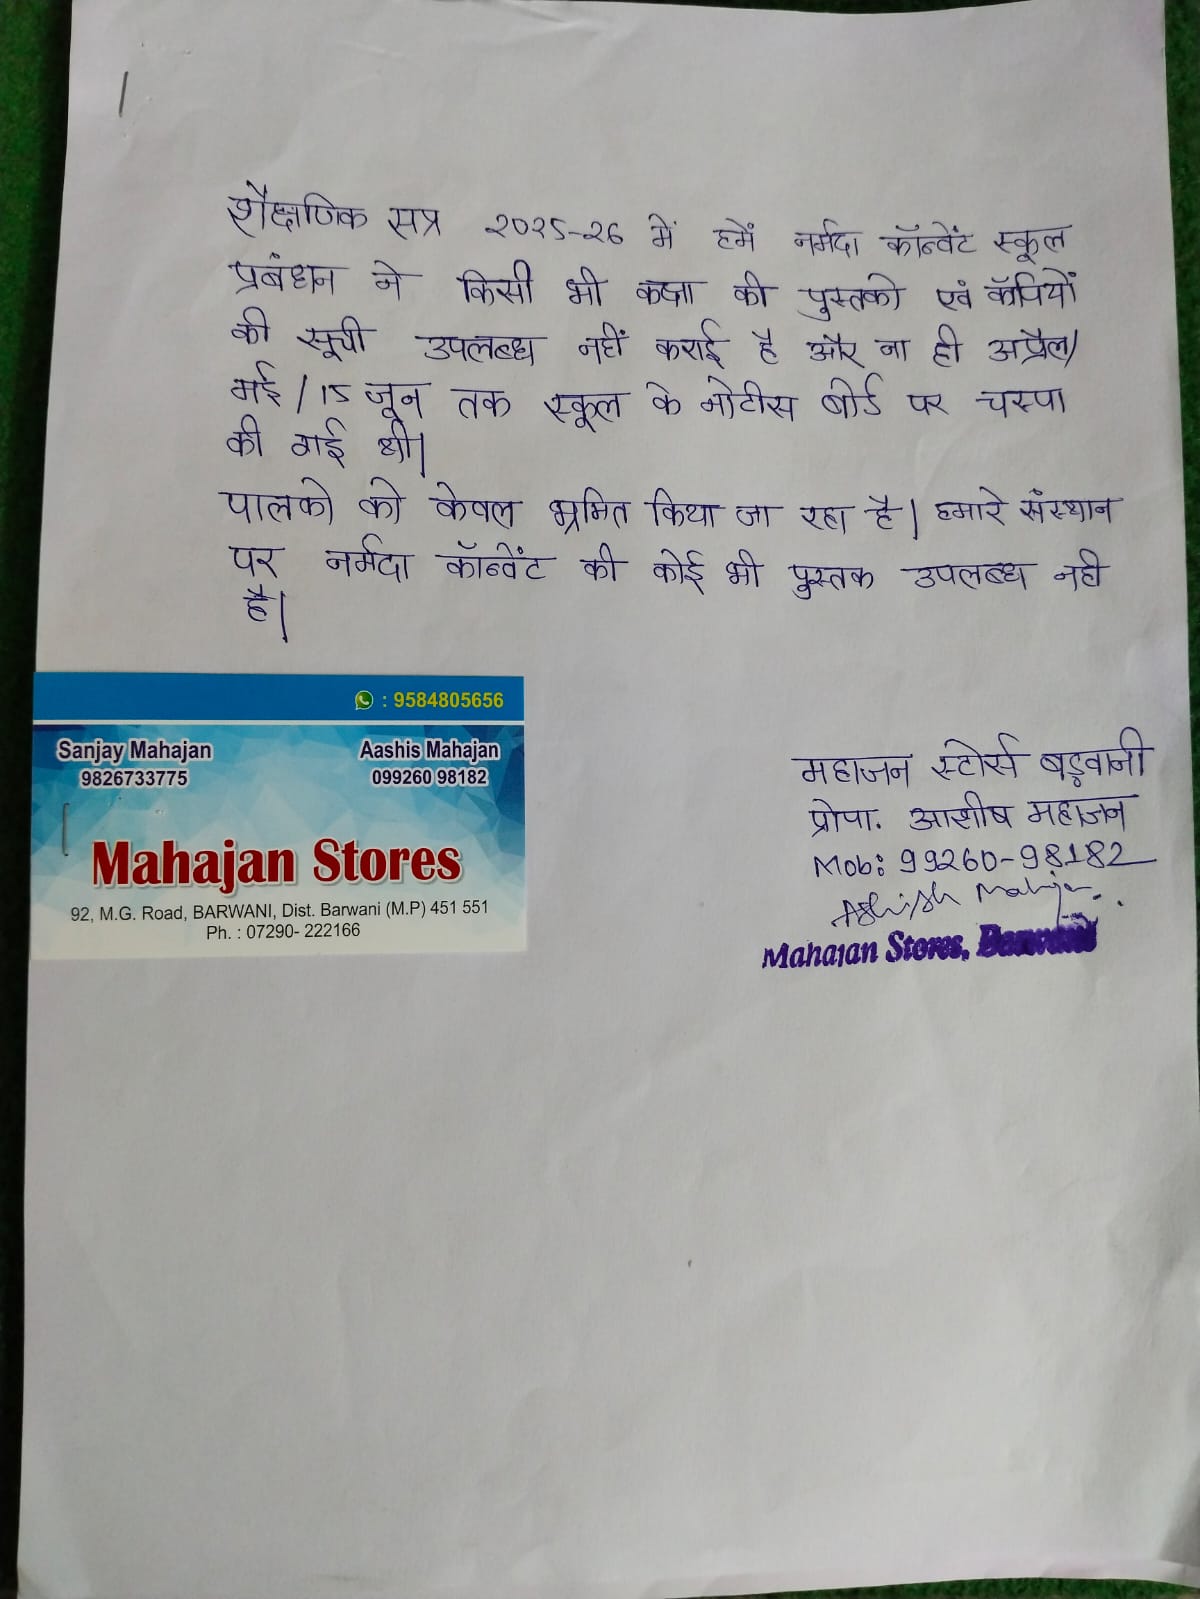 शैक्षणिक सत्र 2025-26 में हमें नर्मदा कॉन्वेंट स्कूल
प्रबंधन ने किसी भी कक्षा की पुस्तको एवं कॅापियों
की सूची उपलब्ध नहीं कराई है और ना ही अप्रैल/
मई / 15 जून तक स्कूल के नोटीस बोर्ड पर चस्पा
की गई थी|
पालको को केवल भ्रमित किया जा रहा है| हमारे संस्थान
पर नर्मदा कॉन्वेंट की कोई भी पुस्तक उपलब्ध नही
है|
: 9584805656
Sanjay Mahajan
9826733775
Aashis Mahajan
099260 98182
Mahajan Stores
92, M.G. Road, BARWANI, Dist. Barwani (M.P) 451 551
Ph. : 07290- 222166
महाजन स्टोर्स बड़वानी
प्रोपा. आशीष महाजन
Mob: 99260-98182
Ashish Mahajan
Mahajan Stores, Barwani